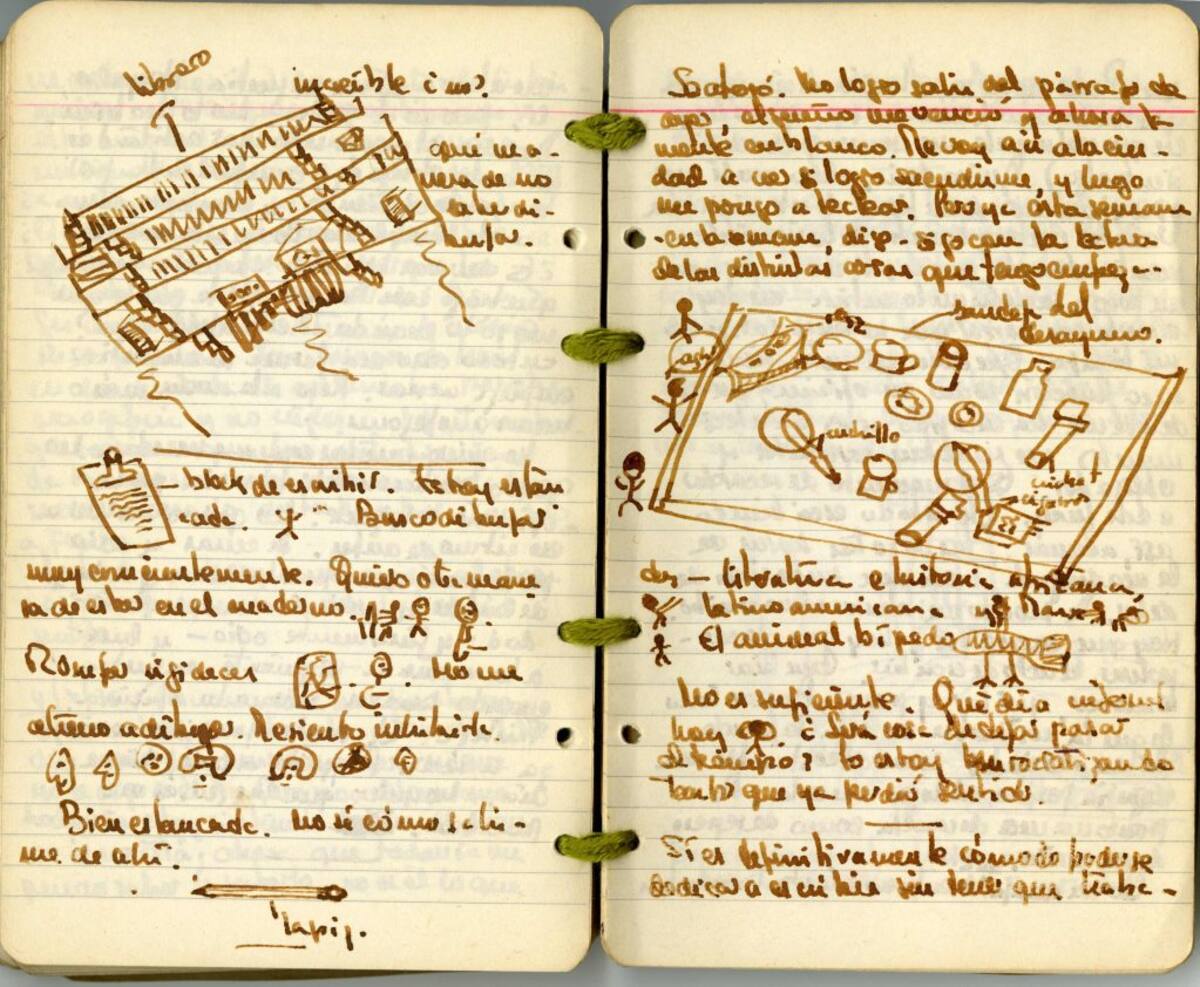 librero
increíble ¿no?
qué ma-
nera de no
saber di-
bujar.
block de escribir. Estoy estan
cada. Busco dibujar
muy conscientemente. Quiero otra mane
ra de estar en el cuaderno.
Romper rigideces No me
atrevo a dibujar. Me siento inhibida.
Bien estancada. no sé cómo salir-
me de ahí.
lapiz.
Se atoró. No logro salir del párrafo de
ayer, el sueño me venció y ahora la
mente en blanco. Me voy a ir a la ciu-
dad a ver si logro sacudirme, y luego
me pongo a teclear. Por ya esta semana
-en la semana, digo- sigo con la lectura
de las distintas cosas que tengo empeza-
sincep del
desayuno.
cuchillo
cricket
cigarros
das — literatura e historia africana,
latinoamericana y Marx
El animal bípedo
No es suficiente. Qué día infernal
hoy ¿Será cosa de dejar pasar
el tiempo? Lo estoy burocratizando
tanto que ya perdió sentido.
Sí es definitivamente cómodo poderse
dedicar a escribir sin tener que traba-